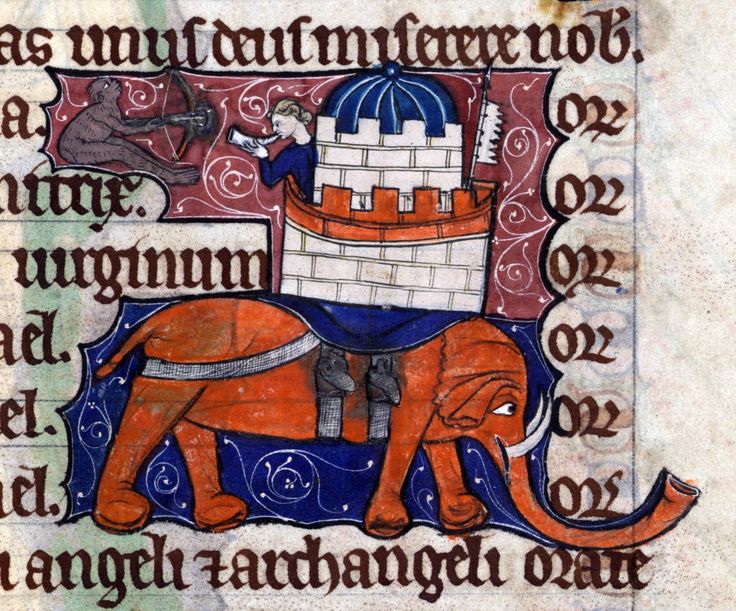 as unus deus miserere nob̄.
a. orr
nitrix. orr
uirginum orr
ael̄. orr
el̄. orr
ael̄. orr
i angeli ⁊ archangeli orate